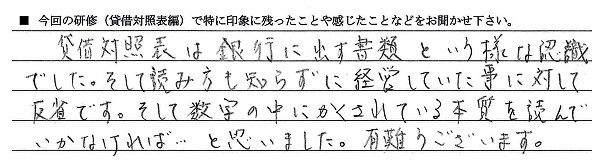 ■ 今回の研修（貸借対照表編）で特に印象に残ったことや感じたことなどをお聞かせ下さい。
貸借対照表は銀行に出す書類という様な認識
でした。そして読み方も知らずに経営していた事に対して
反省です。そして数字の中にかくされている本質を読んで
いかなければ…と思いました。有難うございます。